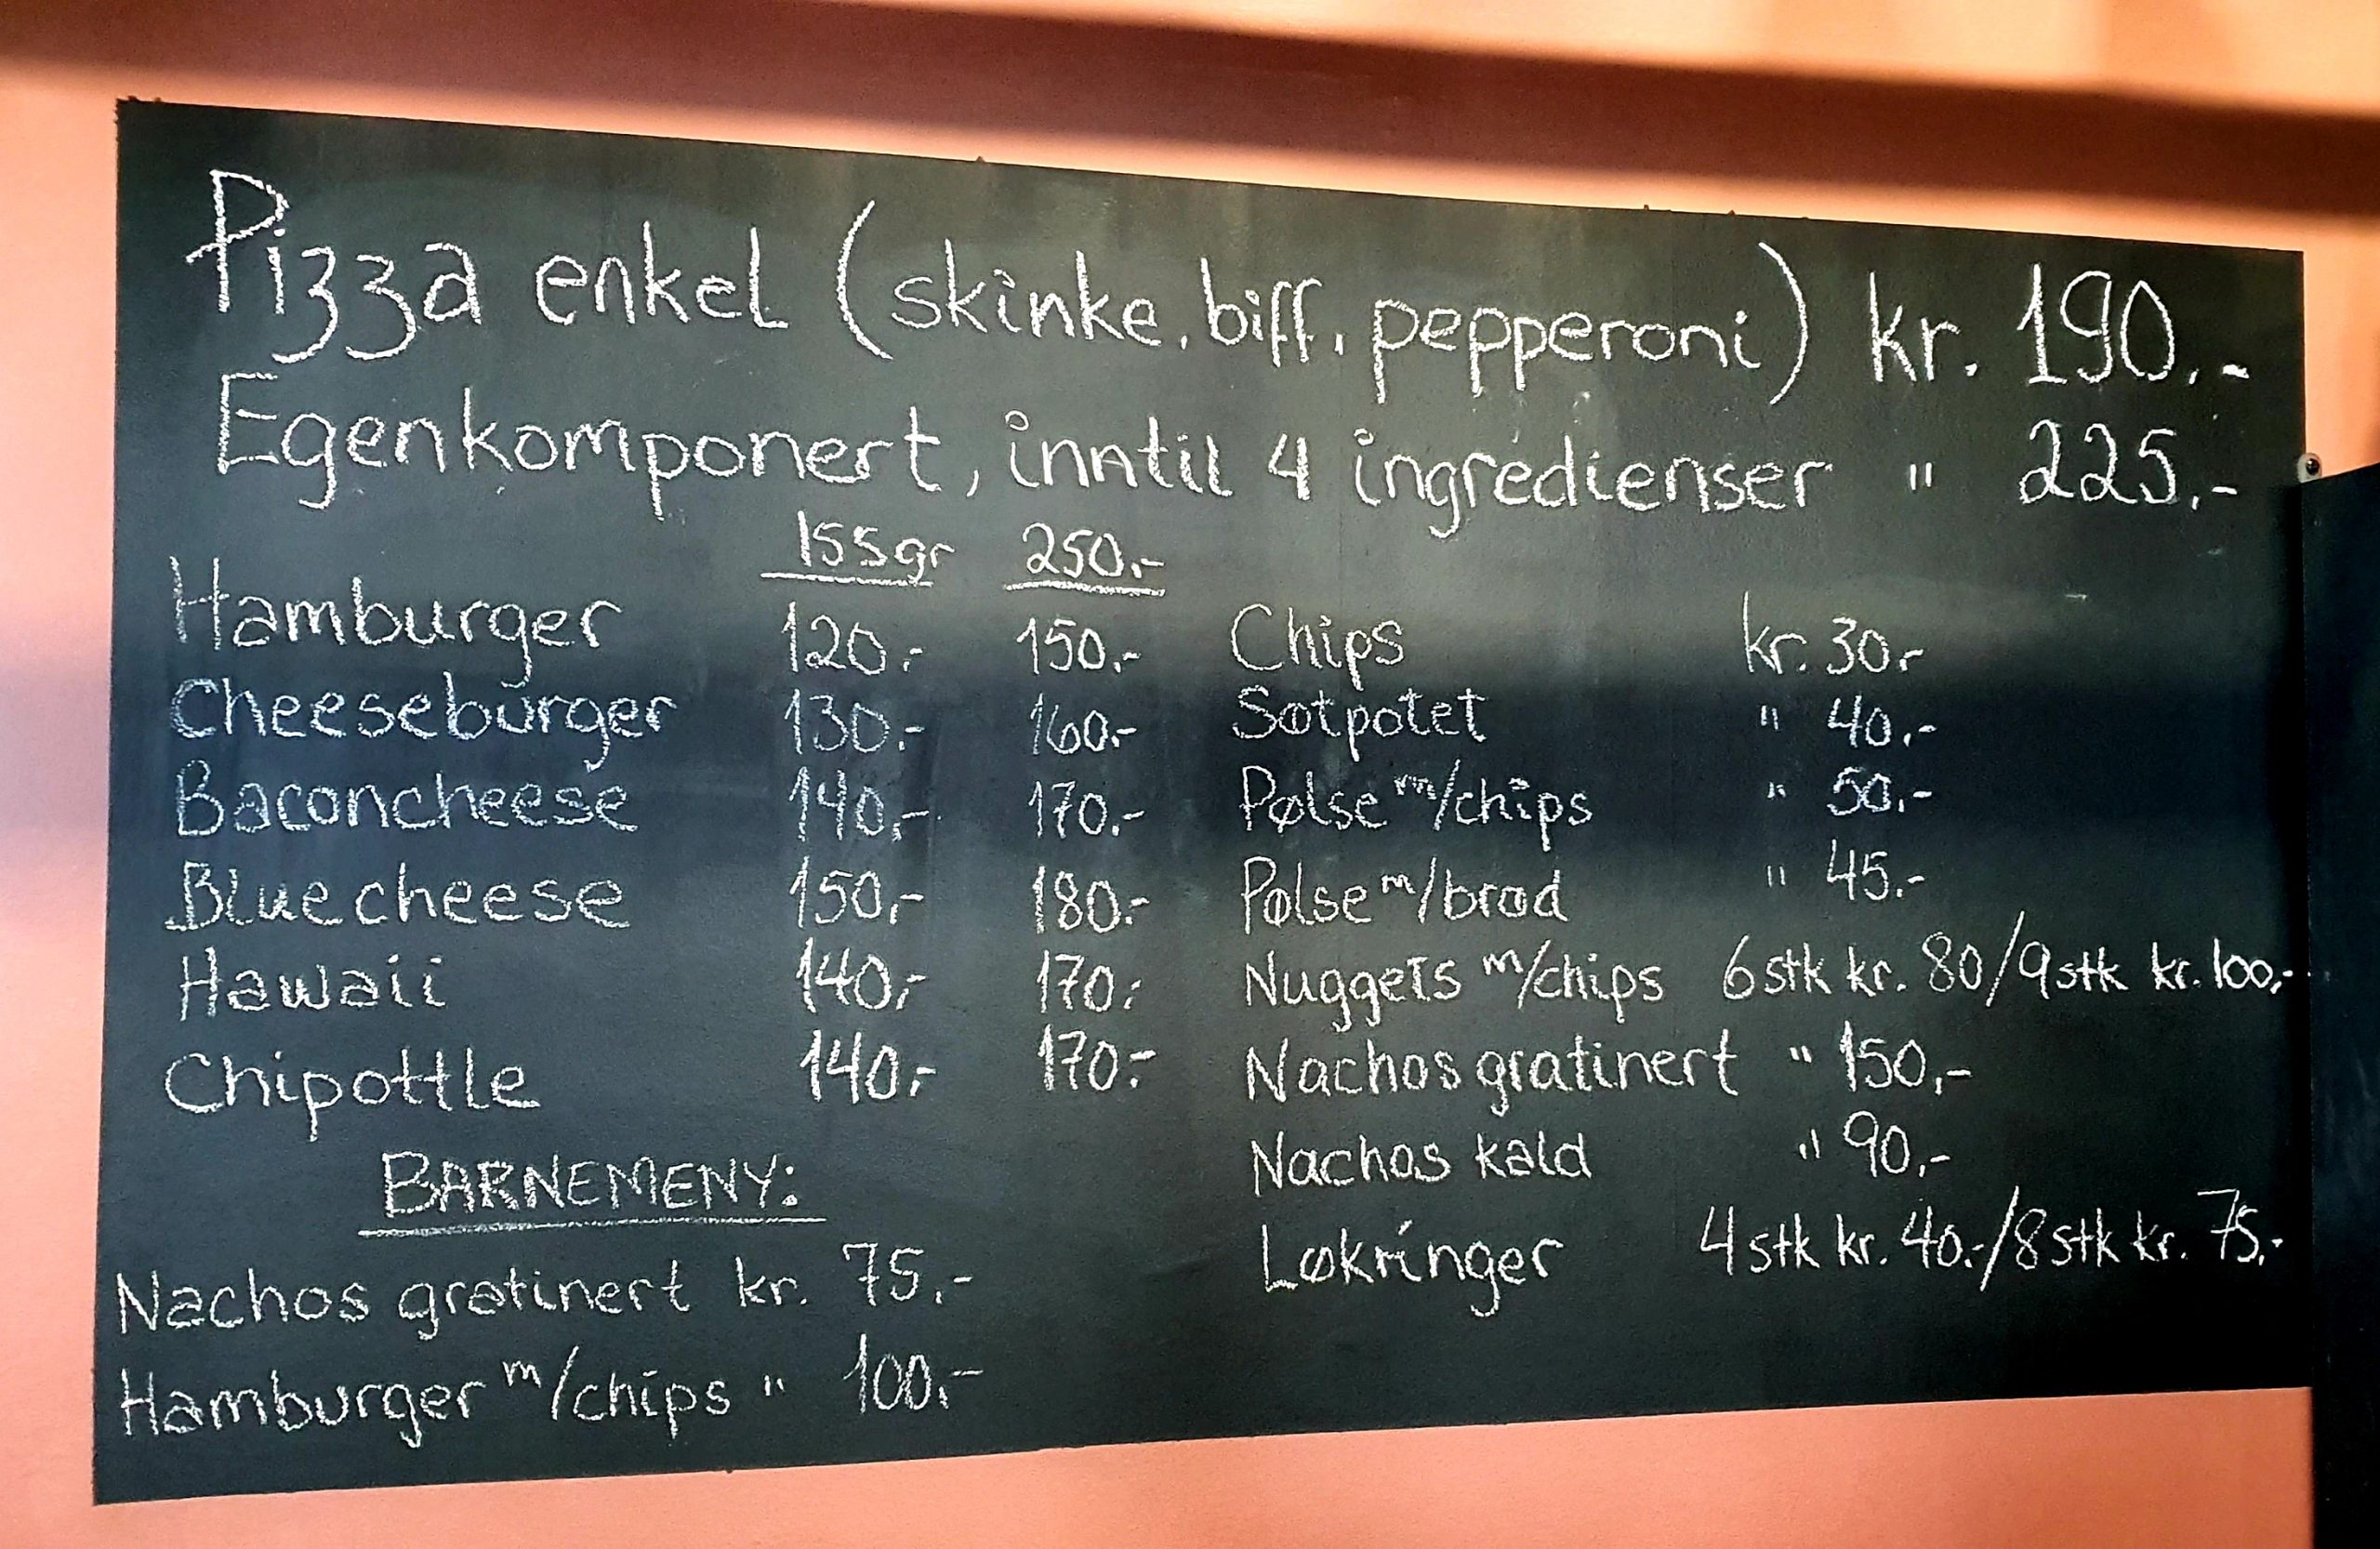 Pizza enkel (skinke, biff, pepperoni) kr. 190.-
Egenkomponert, inntil 4 ingredienser " 225.-
155gr 250.-
Hamburger 120.- 150.-
Cheeseburger 130.- 160.-
Baconcheese 140.- 170.-
Bluecheese 150.- 180.-
Hawaii 140.- 170.-
Chipottle 140.- 170.-
BARNEMENY:
Nachos gratinert kr. 75.-
Hamburger m/chips " 100.-
Chips kr. 30.-
Søtpotet " 40.-
Pølse m/chips " 50.-
Pølse m/brød " 45.-
Nuggets m/chips 6stk kr. 80/9stk kr. 100.-
Nachos gratinert " 150.-
Nachos kald " 90.-
Løkringer 4stk kr. 40.-/8stk kr. 75.-